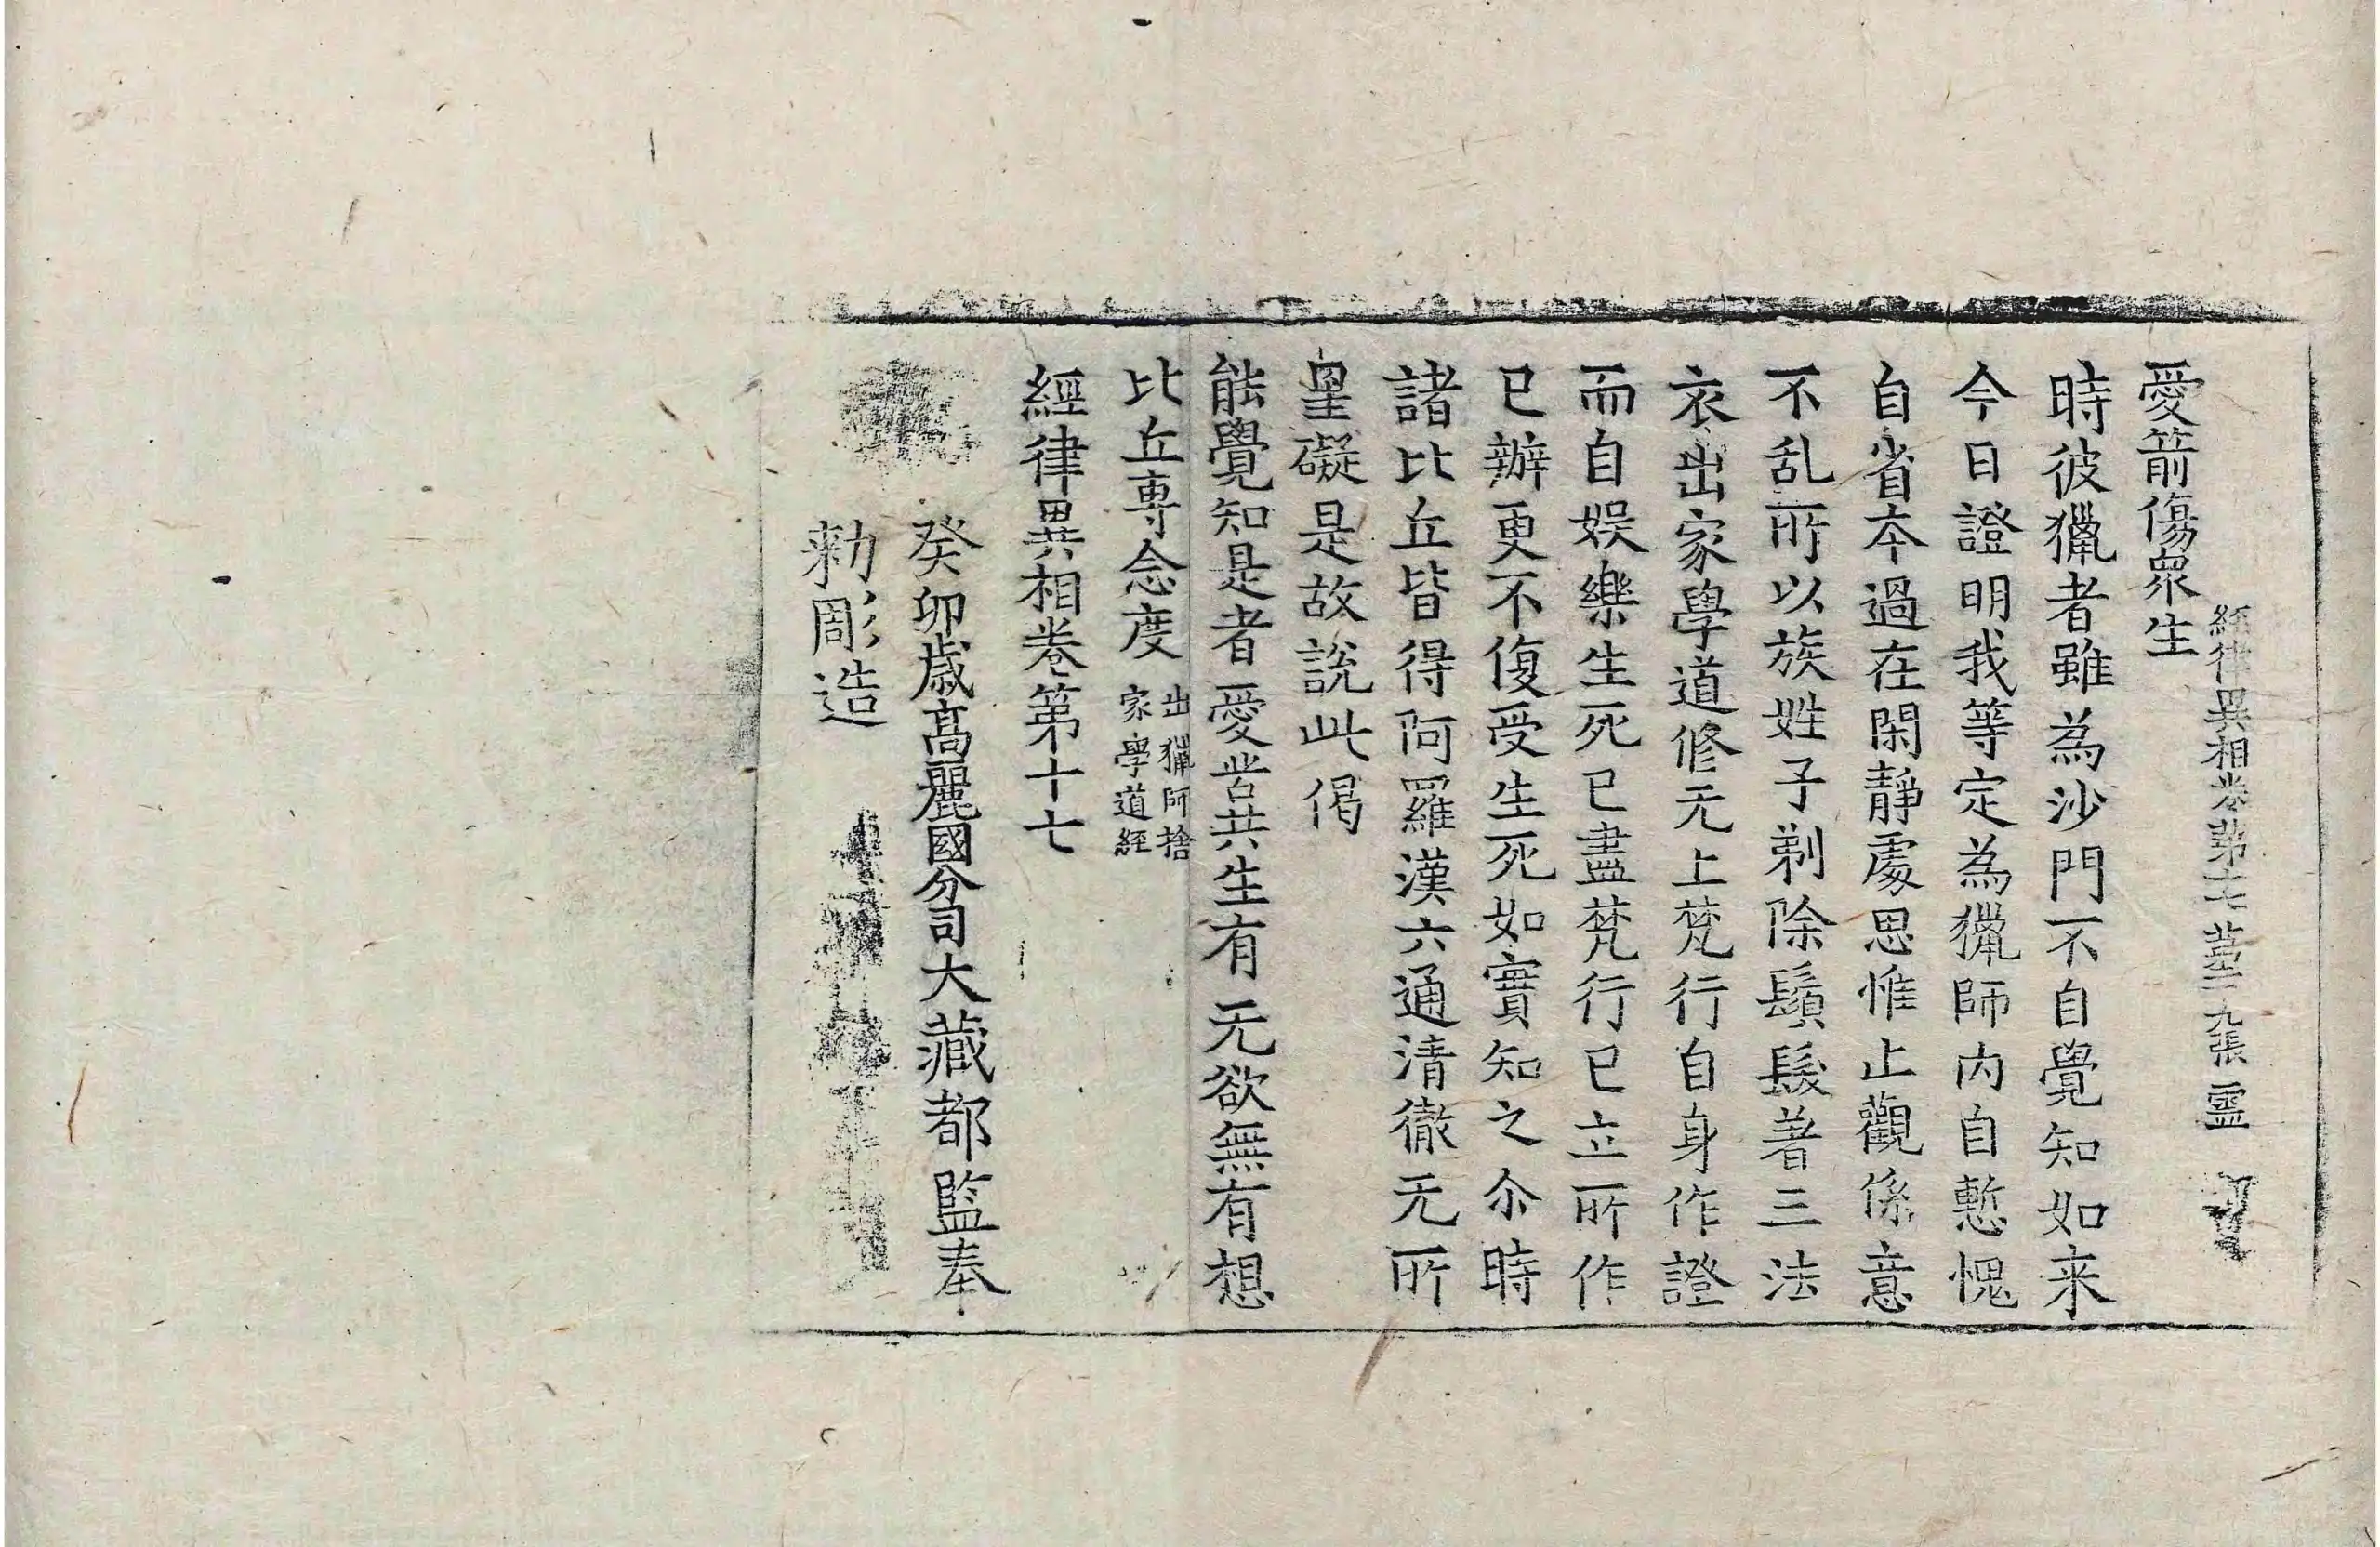 經律異相卷第十七 第二九張 靈
愛箭傷衆生
時彼獵者雖為沙門不自覺知如来
今日證明我等定為獵師内自慙愧
自省本過在閑靜處思惟止觀係意
不乱所以族姓子剃除鬚髮著三法
衣出家學道修无上梵行自身作證
而自娛樂生死已盡梵行已立所作
已辦更不復受生死如實知之尒時
諸比丘皆得阿羅漢六通清徹无所
罣礙是故說此偈
能覺知是者愛苦共生有无欲無有想
比丘専念度 出獵師捨
家學道經
經律異相卷第十七
癸卯歳髙麗國分司大藏都監奉
勑彫造